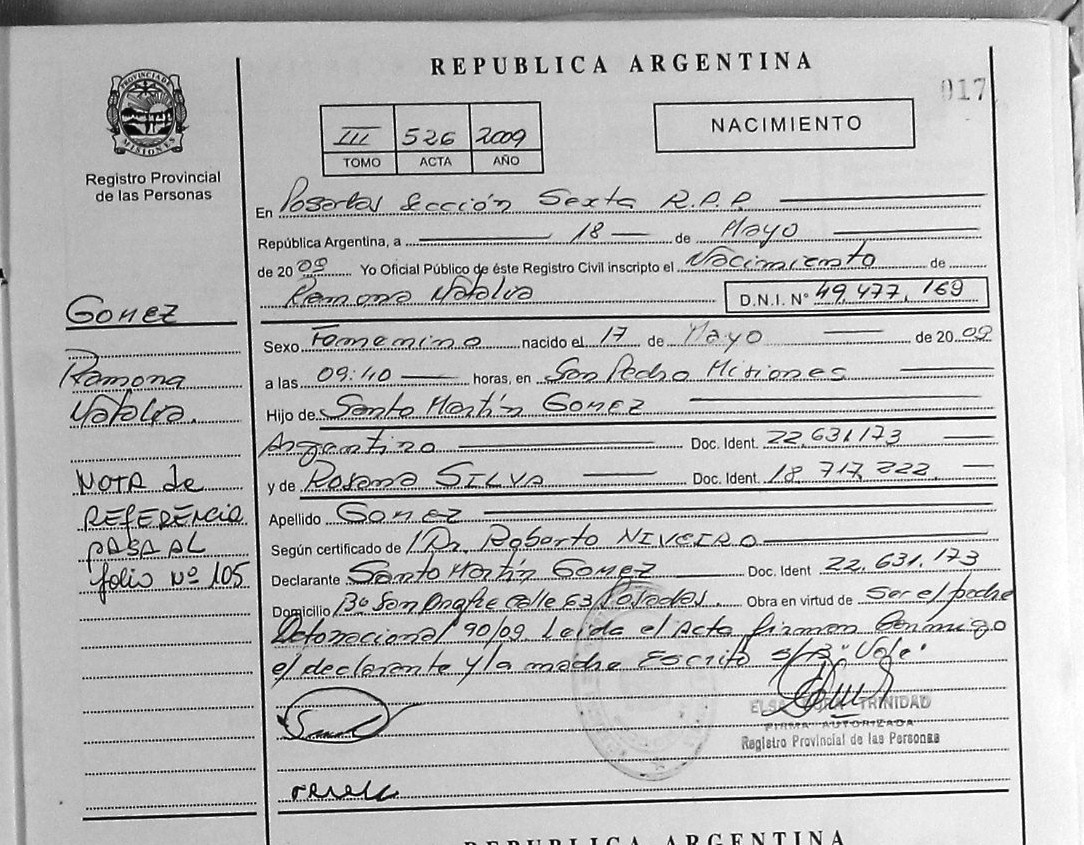 REPUBLICA ARGENTINA
017
PROVINCIA DE
MISIONES
Registro Provincial
de las Personas
III 526 2009
TOMO ACTA AÑO
NACIMIENTO
En Posadas Sección Sexta R.P.P.
República Argentina, a 18 de Mayo
de 2009 Yo Oficial Público de éste Registro Civil inscripto el Nacimiento de
Ramona Natalia D.N.I. N° 49.477.169
Gomez
Ramona
Natalia.
NOTA de
REFERENCIA
PASA AL
folio Nº 105
Sexo Femenino nacido el 17 de Mayo de 2009
a las 09:40 horas, en San Pedro Misiones
Hijo de Santo Martín Gomez
Argentino Doc. Ident. 22.631.173
y de Rosana SILVA Doc. Ident. 18.717.222
Apellido Gomez
Según certificado de Dr. Roberto NIVEIRO
Declarante Santo Martín Gomez Doc. Ident 22.631.173
Domicilio Bº San Onofre Calle 63 Posadas. Obra en virtud de Ser el padre
90/09 Leida el Acta firman Conmigo
el declarante y la madre Escrito s/R "Vale"
ELSA TRINIDAD
FIRMA AUTORIZADA
Registro Provincial de las Personas
REPUBLICA ARGENTINA